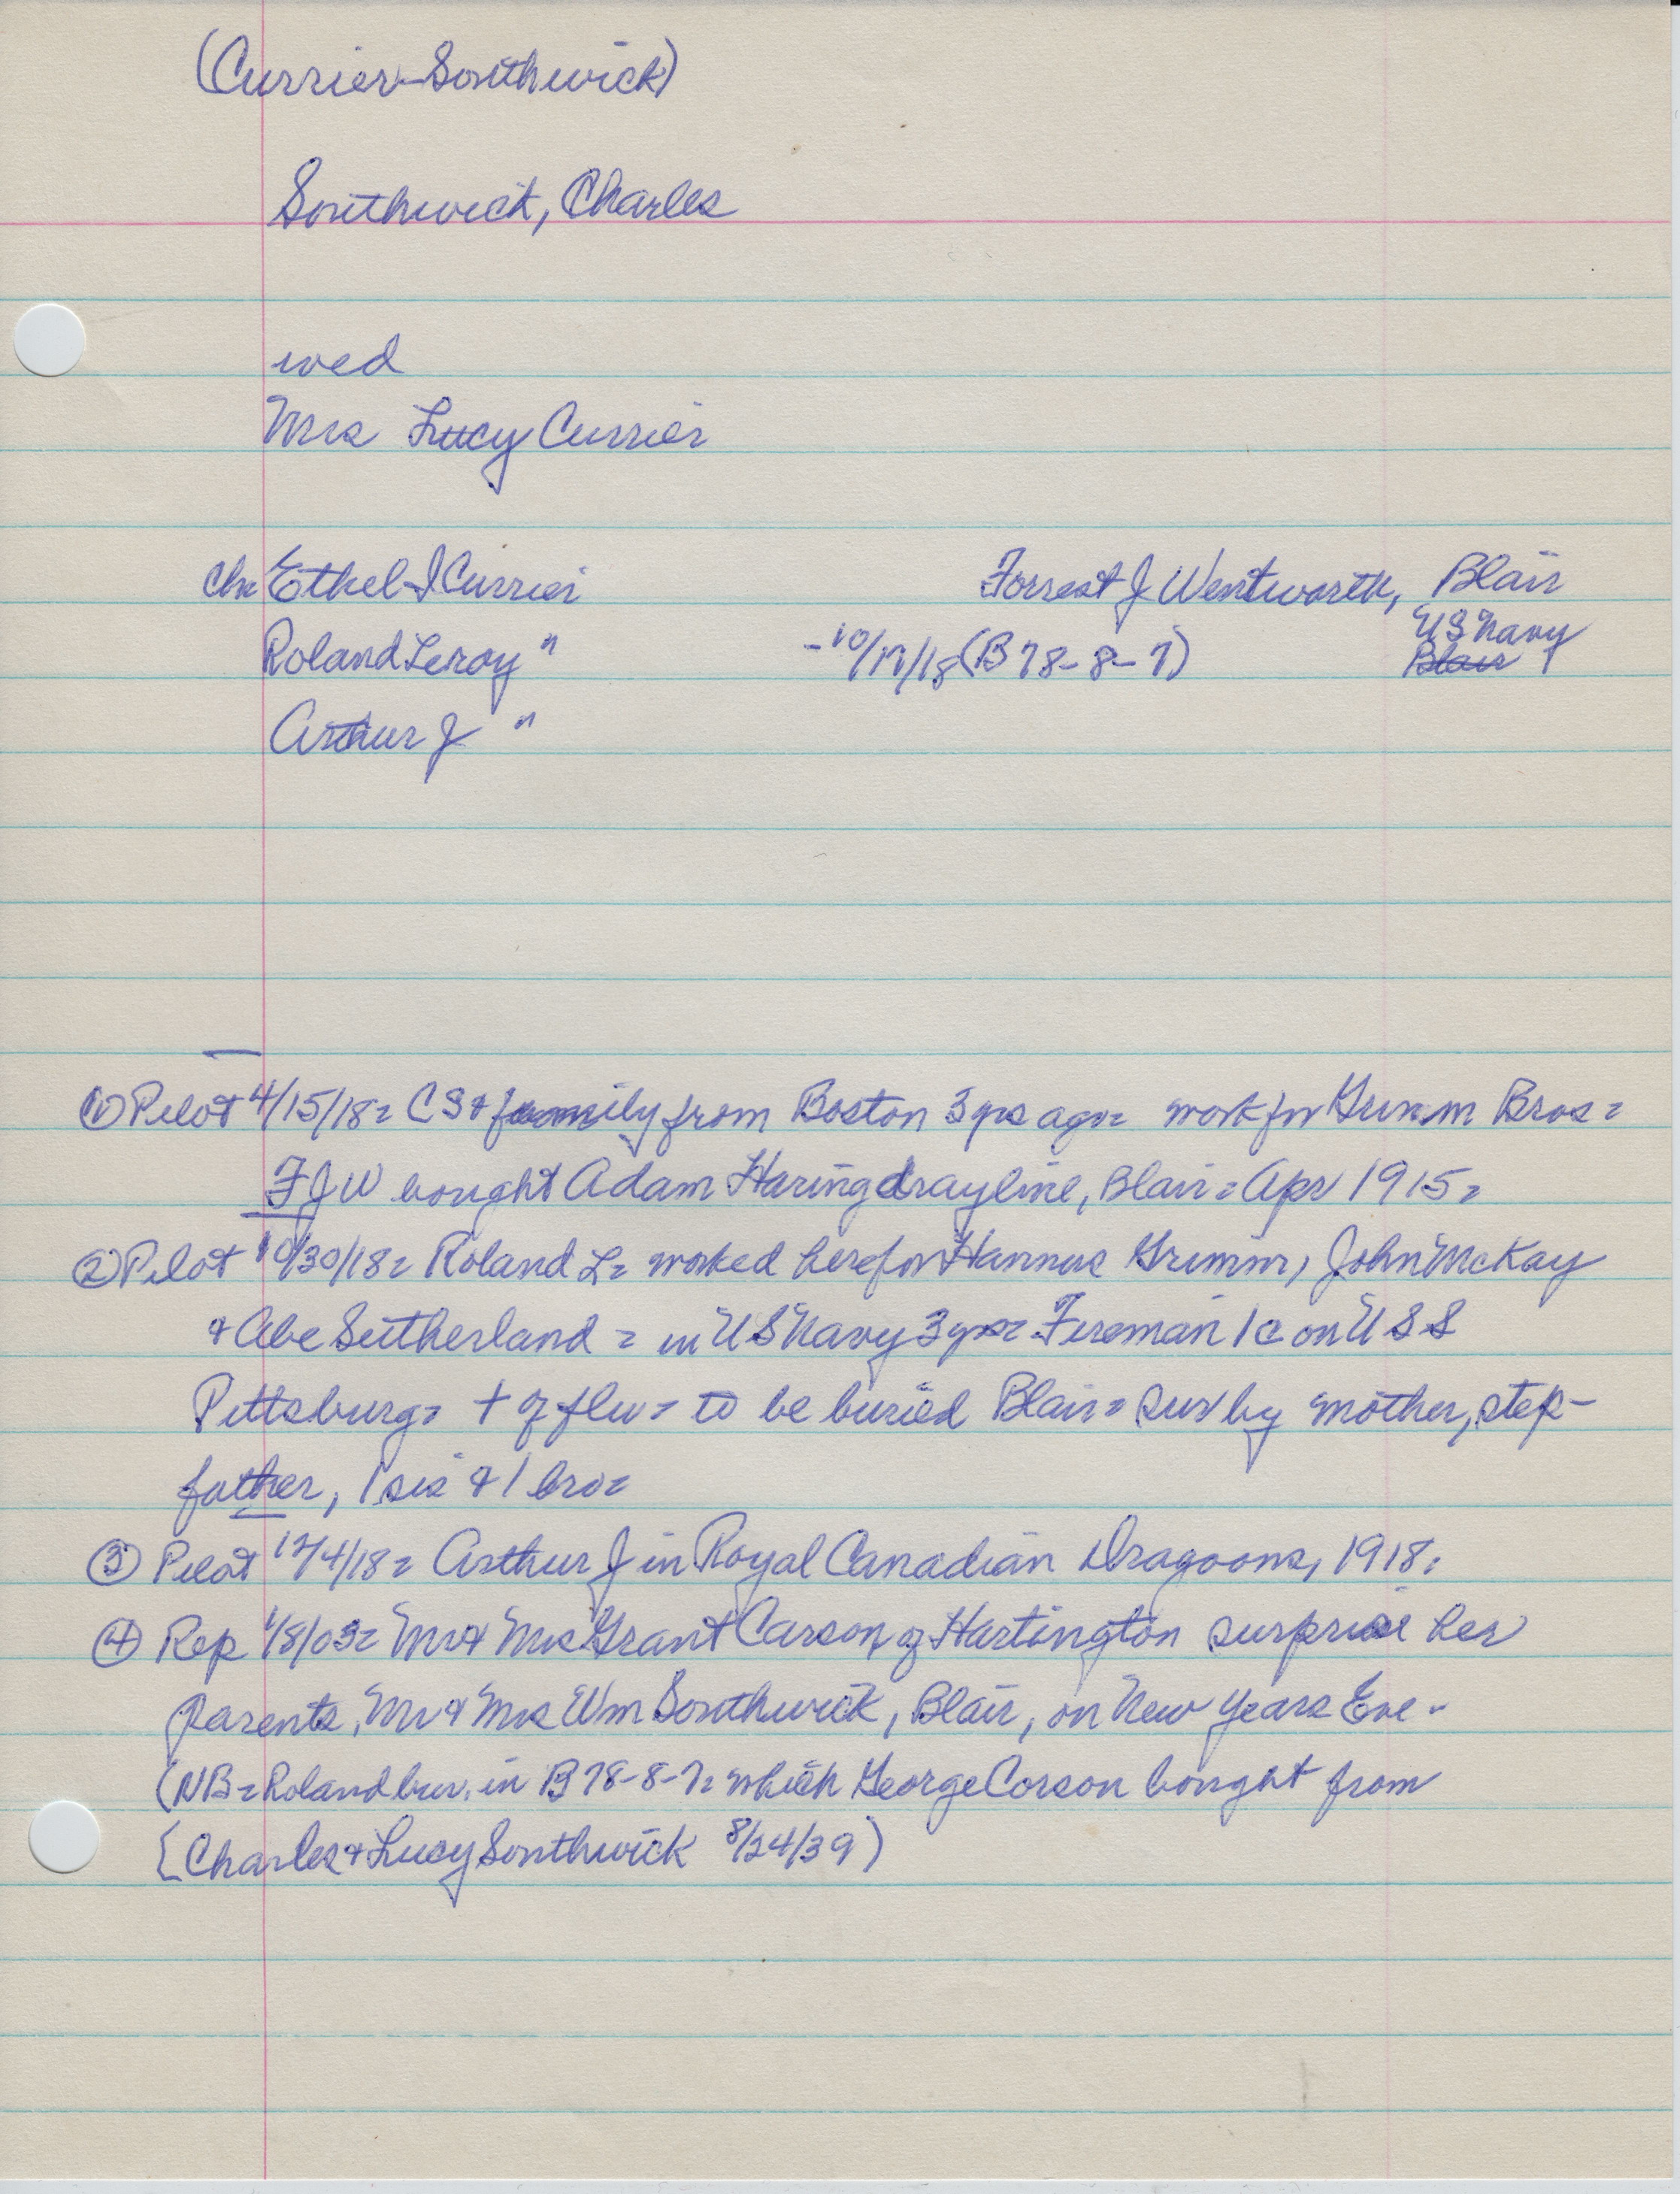 (Currier-Southwick)
Southwick, Charles
wed
Mrs Lucy Currier
Chn Ethel I Currier Forrest J Wentworth, Blair
Roland Leroy " -10/17/18 (B 78-8-7) US Navy
Blair
Arthur J "
① Pilot 4/15/18= CS & family from Boston 3 yrs ago= work for Grimm Bros=
FJW bought Adam Haring drayline, Blair= Apr 1915=
② Pilot 10/30/18= Roland L= worked here for Hannus Grimm, John McKay
& Abe Sutherland = in US Navy 3 yrs= Fireman 1c on USS
Pittsburg= + of flu= to be buried Blair= sur by mother, step-
father, 1 sis & 1 bro=
③ Pilot 12/4/18= Arthur J in Royal Canadian Dragoons, 1918=
④ Rep 1/8/03= Mr & Mrs Grant Carson of Hartington surprise her
parents, Mr & Mrs Wm Southwick, Blair, on New Years Eve-
(NB= Roland bur. in B 78-8-7= which George Corson bought from
Charles & Lucy Southwick 8/24/39)